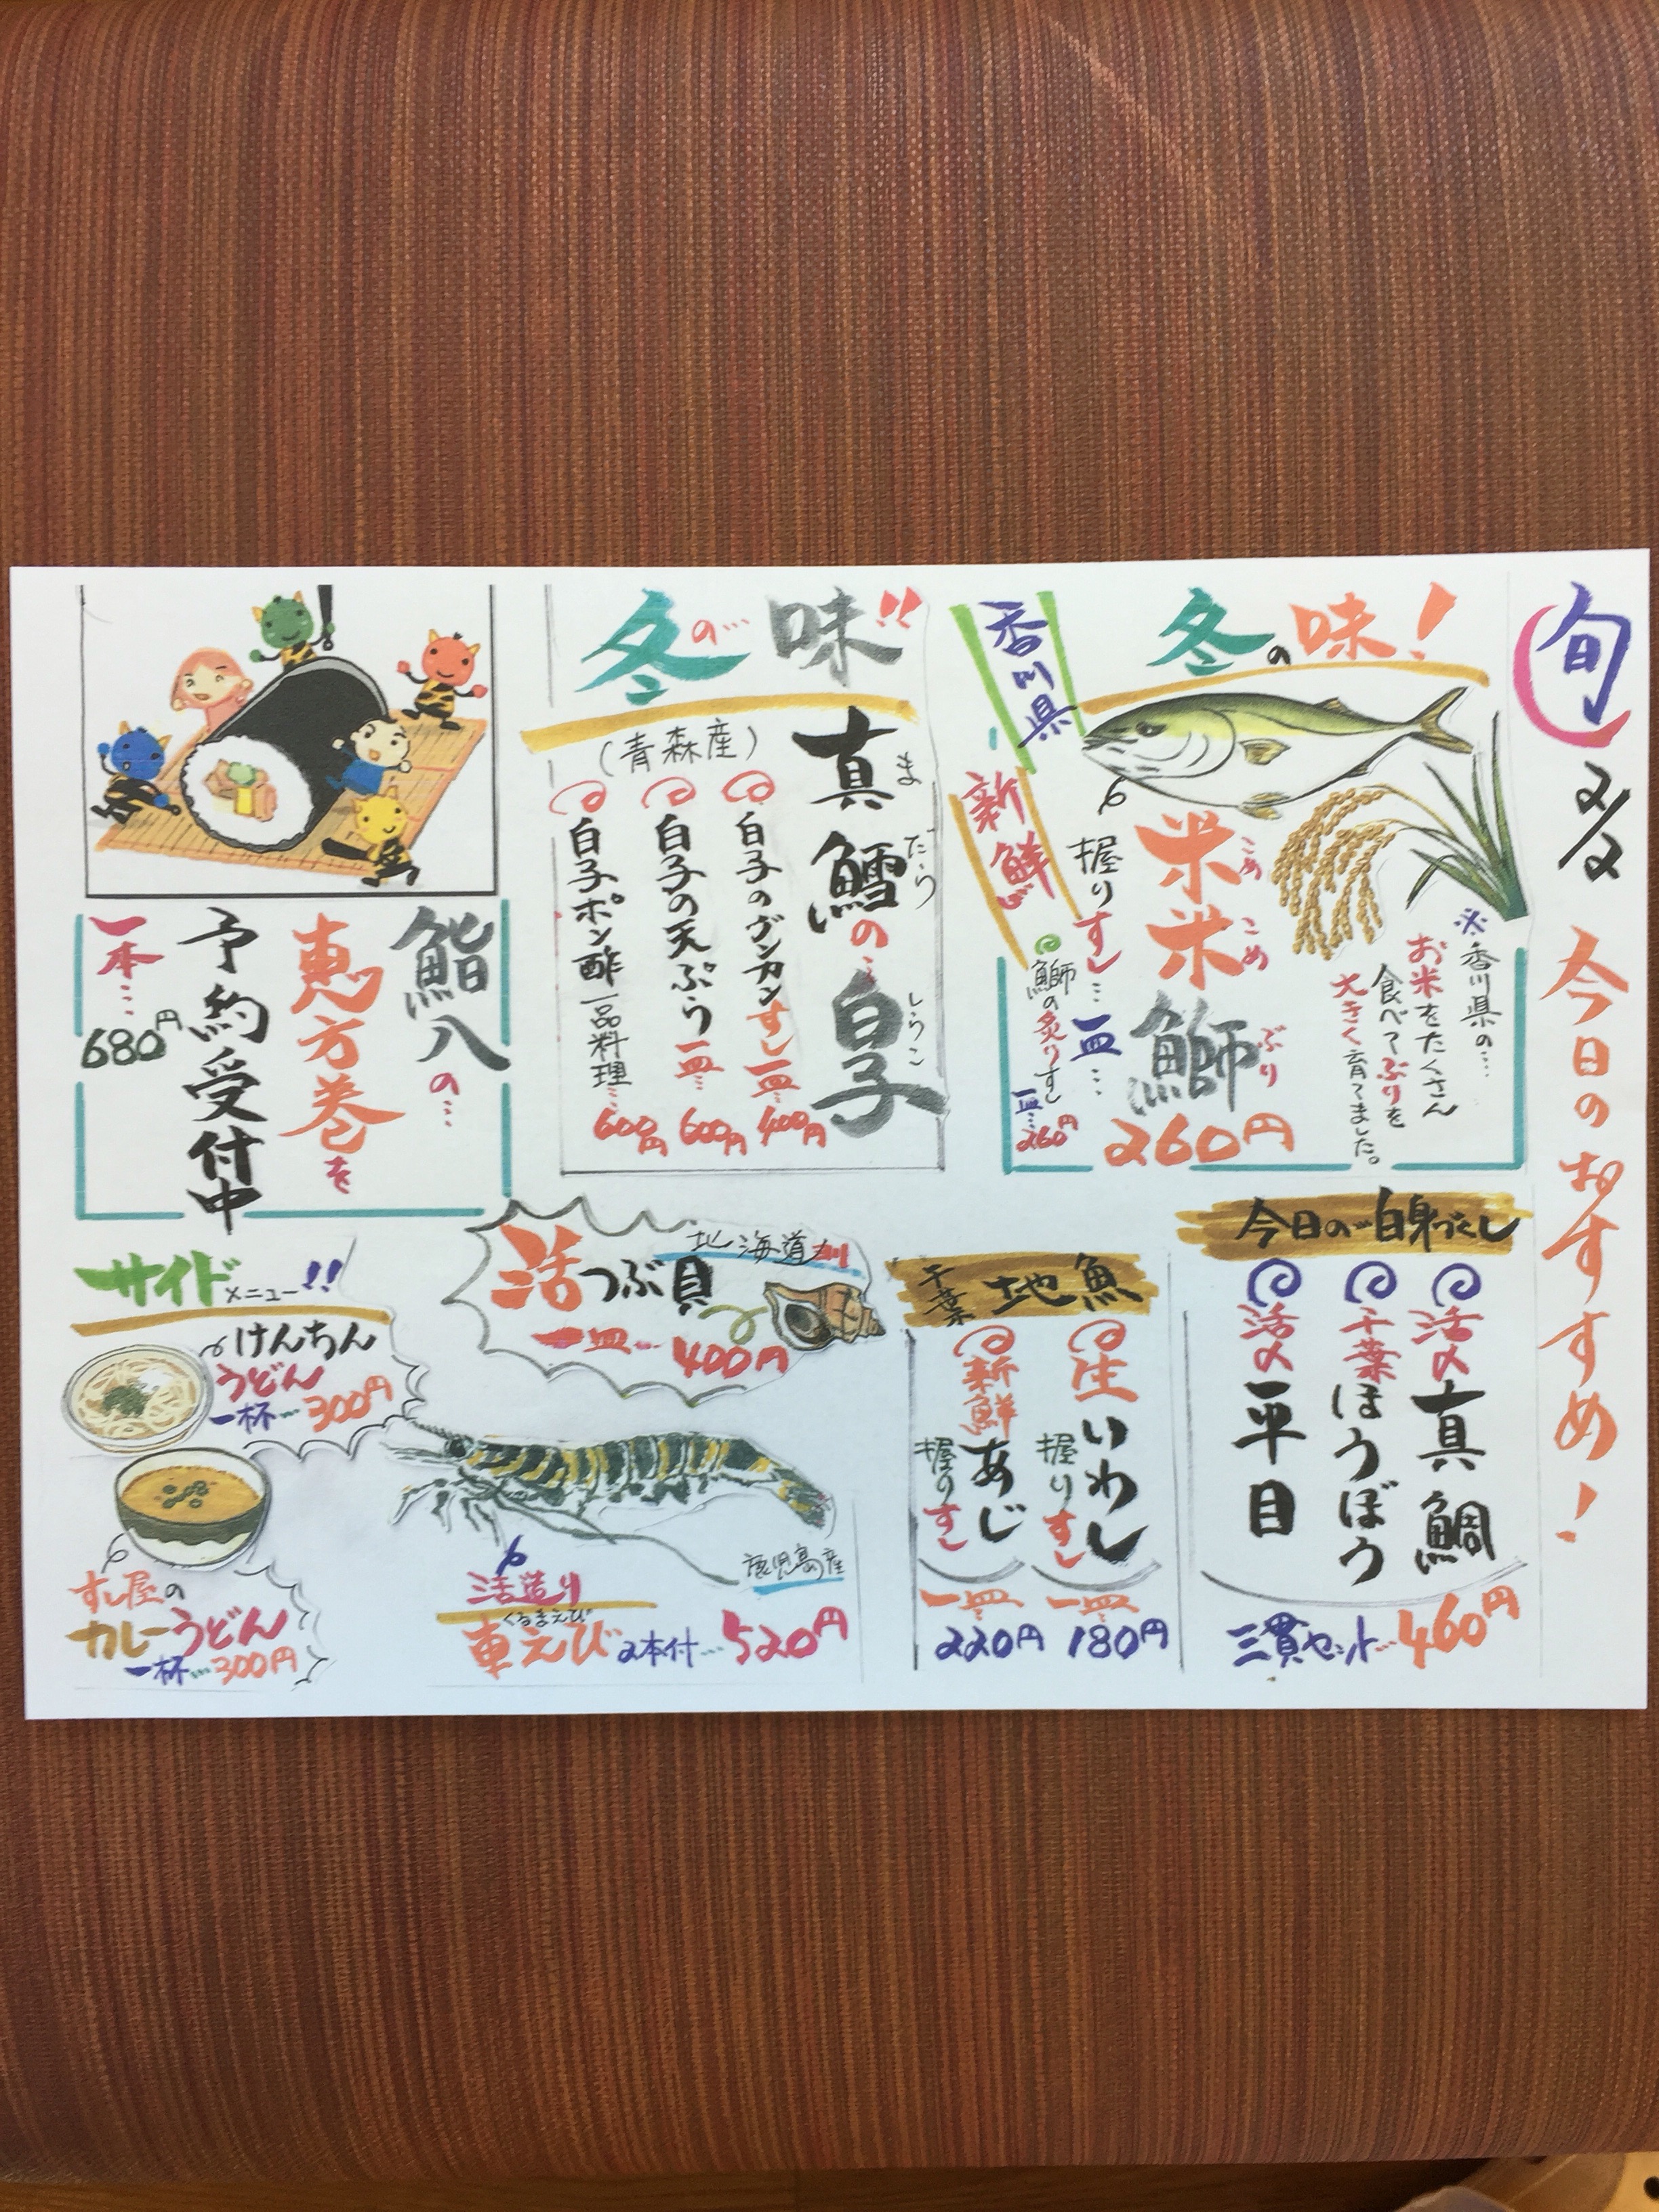 旬
2/2
今日のおすすめ!
冬の味!
香川県
新鮮
米米鰤
こめこめぶり
握りすし…一皿…
260円
鰤の炙りすし
一皿…260円
※香川県の…
お米をたくさん
食べてぶりを
大きく育てました。
冬の…味!!
真鱈の…白子
まだらしらこ
(青森産)
白子のグンカンすし一皿…400円
白子の天ぷら一皿…600円
白子ポン酢一品料理…600円
鮨八の…
恵方巻を
予約受付中
一本…
680円
今日の…白身づくし
活〆真鯛
千葉ほうぼう
活〆平目
三貫セット…460円
千葉地魚
生いわし
握りすし
一皿…
180円
新鮮あじ
握りすし
一皿…
220円
北海道
活つぶ貝
一皿…400円
鹿児島産
活造り
くるまえび
車えび2本付…520円
サイドメニュー!!
けんちん
うどん
一杯…300円
すし屋の
カレーうどん
一杯…300円